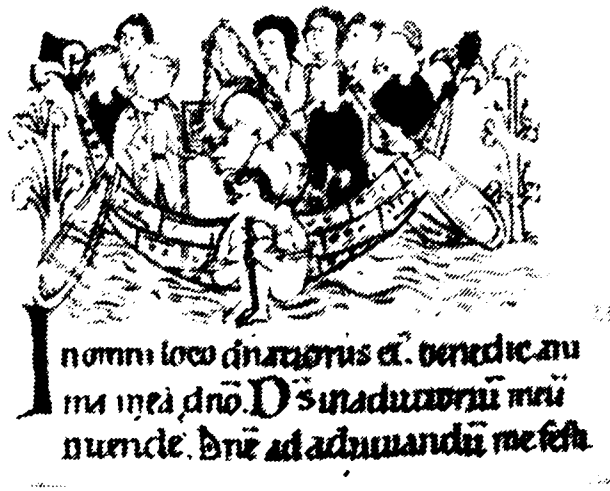 In omni loco dn̄ationis ei᷒. benedic ani
ma mea dn̄o. D̄s in adiutoriū meū
intende. Dn̄e ad adiuuandū me festi